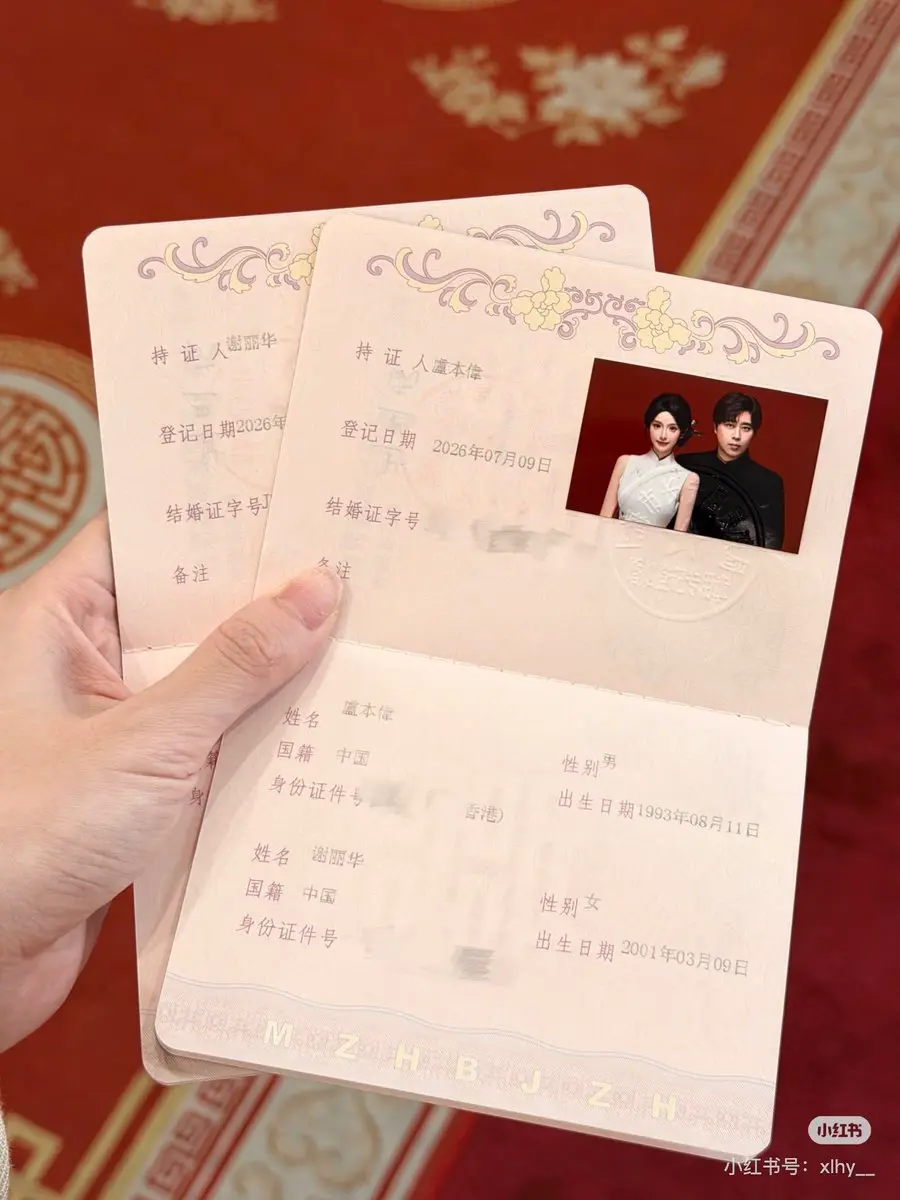 持证人谢丽华
登记日期2026年
结婚证字号J
备注
持证人盧本偉
登记日期 2026年07月09日
结婚证字号
备注
姓名 盧本偉
国籍 中国 性别男
身份证件号 香港) 出生日期1993年08月11日
姓名 谢丽华
国籍 中国 性别女
身份证件号 出生日期2001年03月09日
M Z H B J Z H
小红书
小红书号：xlhy__